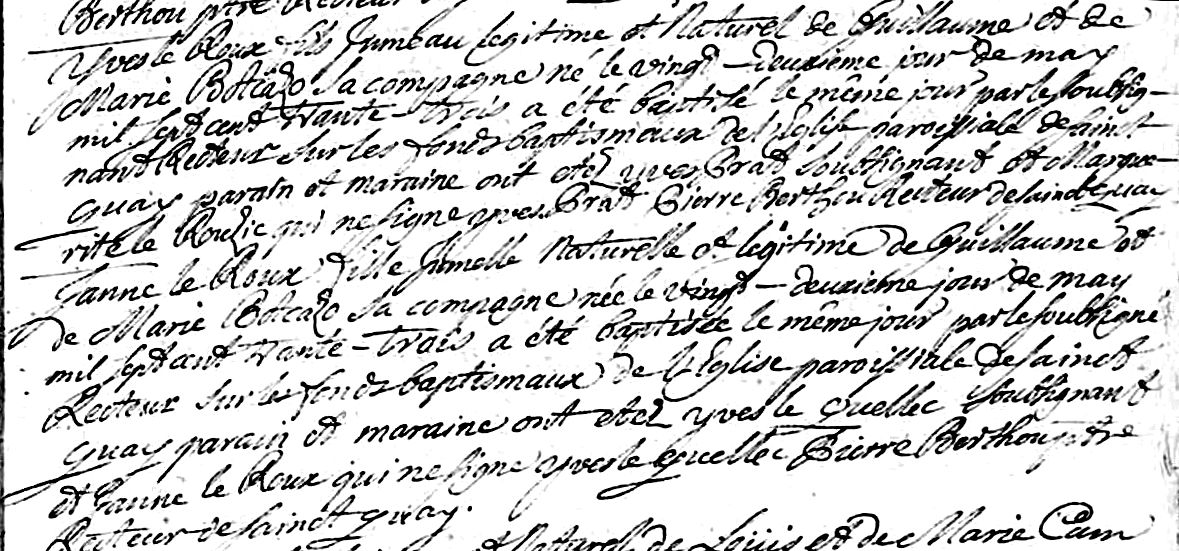 Berthou ptre Recteur
Yves le Roux fils Jumeau legitime et Naturel de Guillaume et de
Marie Botcazo sa compagne né le vingt - deuxieme jour de may
mil sept cent trante - trois a été baptisé le même jour par le soubsig-
nant Recteur sur les fonds baptismaux de l'Eglise paroissiale de sainct
quay parain et maraine ont etez yves Prat soubsignant et Margue-
rite le qui ne signe yves Prat Pierre Berthou Recteur de sainct quay
Janne le Roux fille Jumelle Naturelle et legitime de Guillaume et
de Marie Botcazo sa compagne née le vingt - deuxieme jour de may
mil sept cent trante - trois a été baptisée le même jour par le soubsigné
Recteur sur les fonds baptismaux de l'Eglise paroissiale de sainct
quay parain et maraine ont etez yves le quellec soubsignant
et Janne le Roux qui ne signe yves le quellec Pierre Berthou ptre
Recteur de sainct quay.
et Naturel de Louis et de Marie Cam